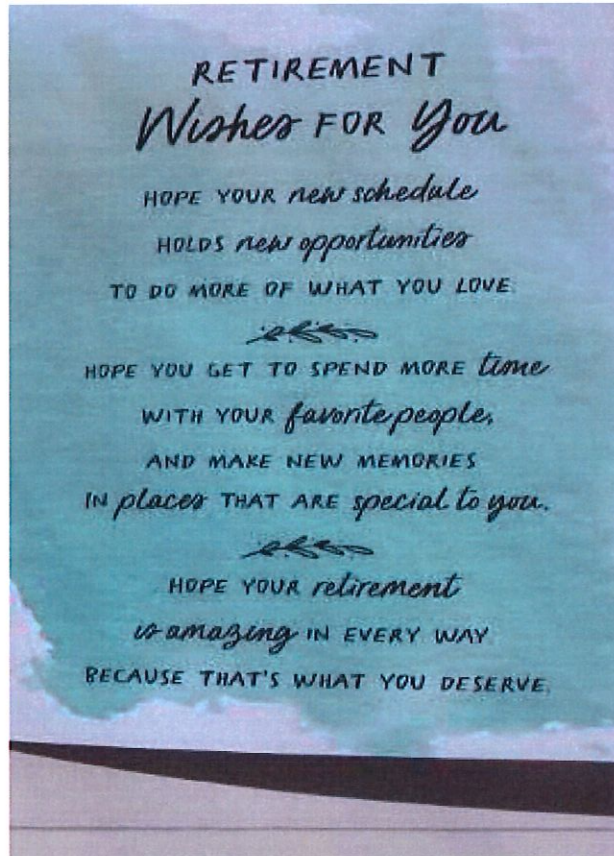 RETIREMENT
Wishes FOR You
HOPE YOUR new schedule
HOLDS new opportunities
TO DO MORE OF WHAT YOU LOVE.
HOPE YOU GET TO SPEND MORE time
WITH YOUR favorite people,
AND MAKE NEW MEMORIES
IN places THAT ARE special to you.
HOPE YOUR retirement
is amazing IN EVERY WAY
BECAUSE THAT'S WHAT YOU DESERVE.